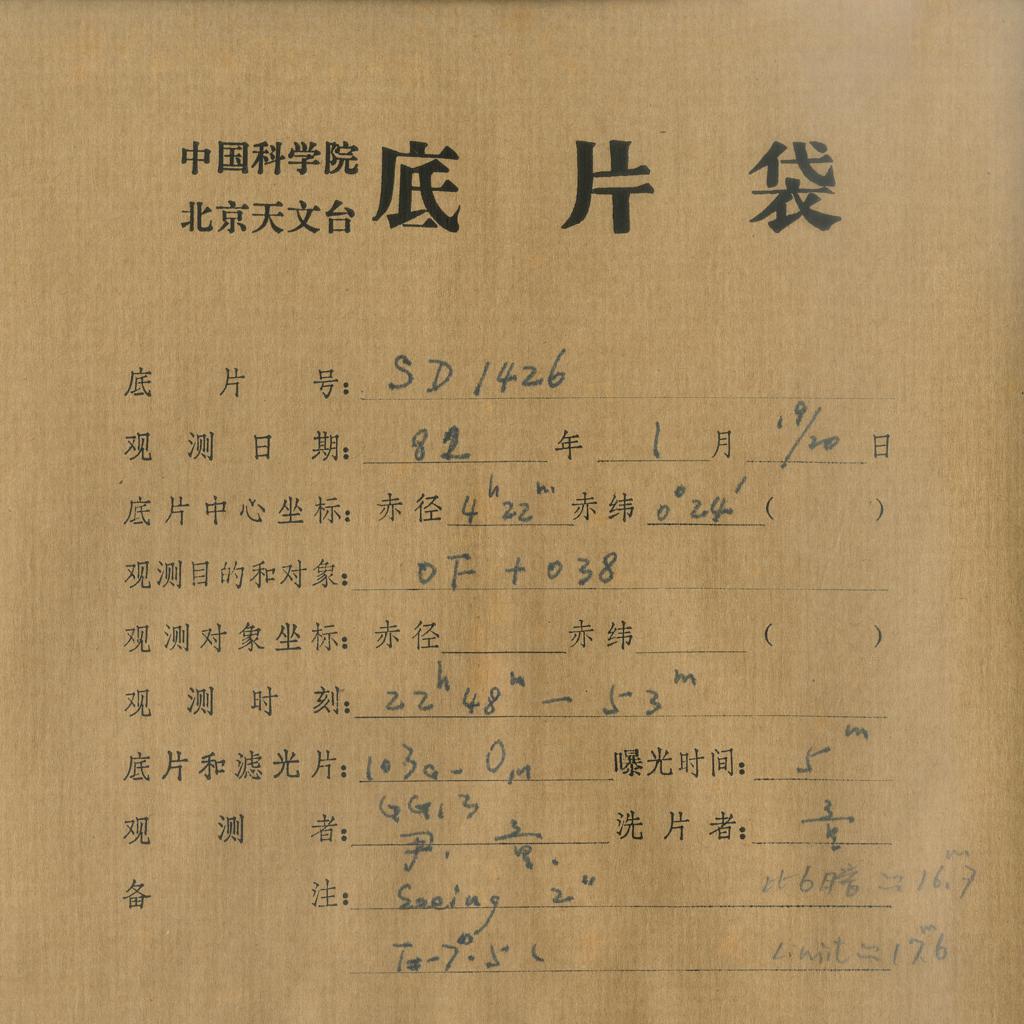 中国科学院
北京天文台 底片袋
底片号: SD 1426
观测日期: 82 年 1 月 19/20 日
底片中心坐标: 赤径 4h 22m 赤纬 0°24′ ( )
观测目的和对象: OF + 038
观测对象坐标: 赤径 赤纬 ( )
观测时刻: 22h 48m — 53m
底片和滤光片: 103a-O, 曝光时间: 5m
GG13
观测者: 尹. 洗片者:
备注: Seeing 2" 比6暗 ≈ 16.7m
T=-7°.5 Limit ≈ 17.6m